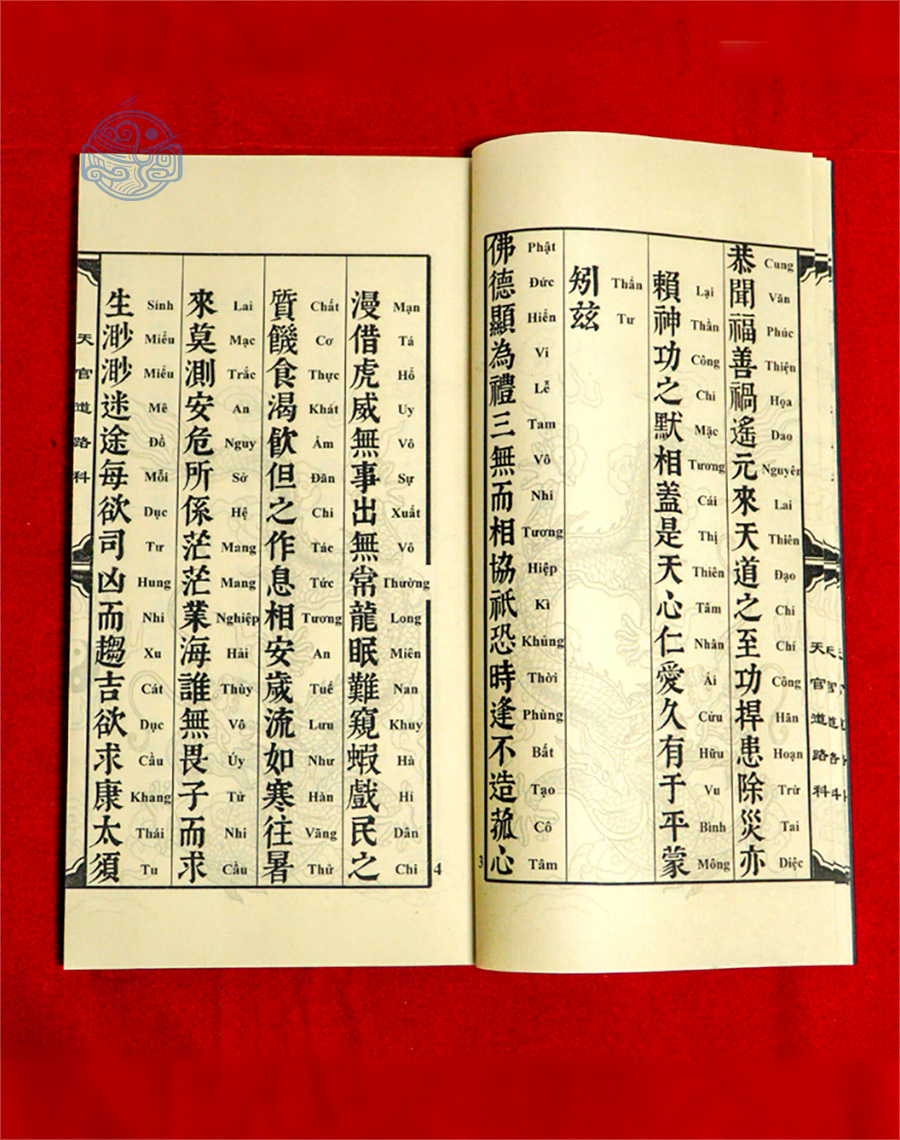 天官道路科
恭聞福善禍遙元來天道之至功捍患除災亦
Cung Văn Phúc Thiện Họa Dao Nguyên Lai Thiên Đạo Chi Chí Công Hãn Hoạn Trừ Tai Diệc
賴神功之默相蓋是天心仁愛久有于平蒙
Lại Thần Công Chi Mặc Tương Cái Thị Thiên Tâm Nhân Ái Cửu Hữu Vu Bình Mông
矧茲
Thẩn Tư
佛德顯為禮三無而相協祇恐時逢不造菰心
Phật Đức Hiển Vi Lễ Tam Vô Nhi Tương Hiệp Kì Khủng Thời Phùng Bất Tạo Cô Tâm
3
漫借虎威無事出無常龍眠難窺蝦戲民之
Mạn Tá Hổ Uy Vô Sự Xuất Vô Thường Long Miên Nan Khuy Hà Hí Dân Chi
質饑食渴飮但之作息相安歲流如寒往暑
Chất Cơ Thực Khát Ẩm Đãn Chi Tác Tức Tương An Tuế Lưu Như Hàn Vãng Thử
來莫測安危所係茫茫業海誰無畏子而求
Lai Mạc Trắc An Nguy Sở Hệ Mang Mang Nghiệp Hải Thùy Vô Úy Tử Nhi Cầu
生渺渺迷途每欲司凶而趨吉欲求康太須
Sinh Miểu Miểu Mê Đồ Mỗi Dục Tư Hung Nhi Xu Cát Dục Cầu Khang Thái Tu
天官道路科
4